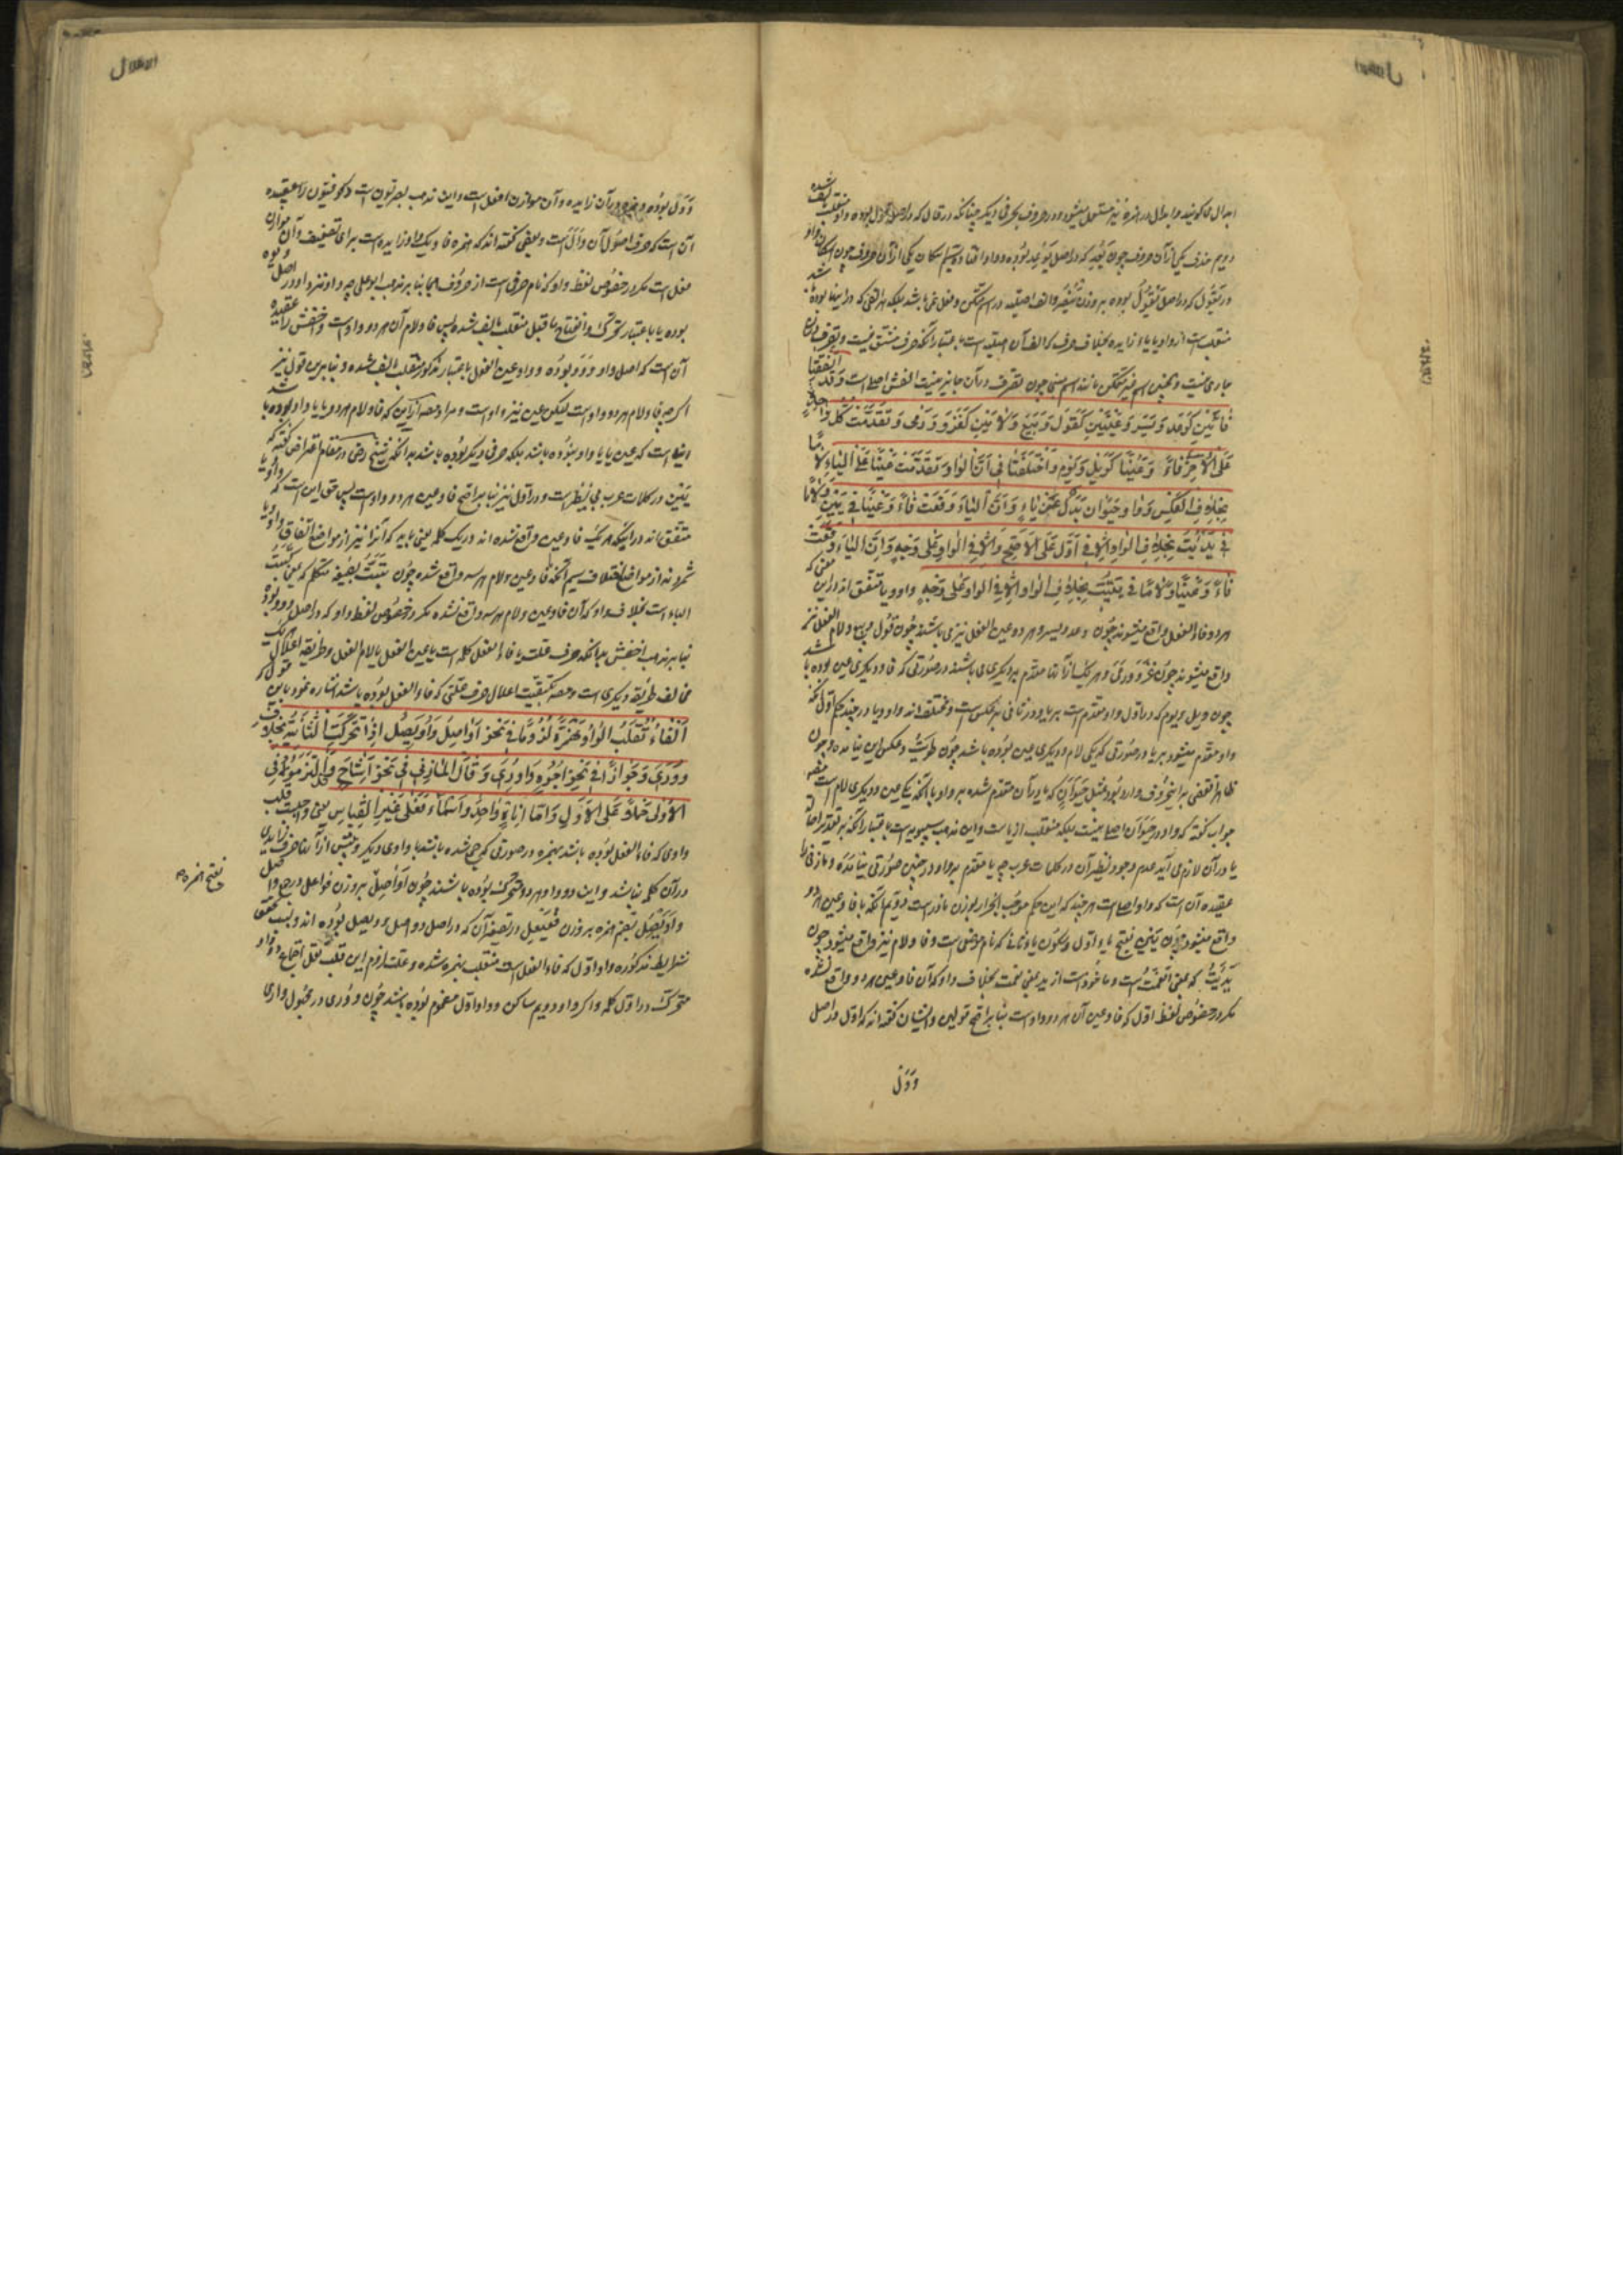 ابدال میکویند و ابدال در همزه نیز مستعمل میشود و در حروف بحرفی دیکر چنانکه در قال که در اصل قول بوده واو منقلب بالف شده
دویم حذف یکی از آن حروف چون یَعِد که در اصل یَوعِد بوده و واو افتاده سیم اسکان یکی از آن حروف چون اسکان واو
در یَقُول که در اصل یَقْوُل بوده بر وزن یَنْصُر و الف اصلیه در اسم متمکن و فعل نمی باشد بلکه هر الفی که در اینها بوده باشد
منقلب است از واو یا یا و زایده بخلاف حرف که الف آن اصلیه است باعتبار آنکه حرف مشتق نیست و تصرف در آن
جاری نیست و همچنین اسم غیر متمکن مانند اسم مبنی چون تصرف در آن جایز نیست الفش اصلی است وَقَدِ اتَّفَقَتَا
فَائَیْنِ کَوَعَدَ وَیَسَرَ وَعَیْنَیْنِ کَقَوْلٍ وَبَیْعٍ وَلامَیْنِ کَغَزْوٍ وَرَمْیٍ وَتَقَدَّمَتْ کُلُّ وَاحِدَةٍ
عَلَی الاُخْرٰی فَاءً وَعَیْنًا کَوَیْلٍ وَیَوْمٍ وَاخْتَلَفَتَا فِی اَنَّ الْوَاوَ تَقَدَّمَتْ عَیْنًا عَلَی الْیَاءِ لامًا
بِخِلافِ الْعَکْسِ وَوَاوُ حَیَوَان بَدَلٌ عَنْ یَاءٍ وَاَنَّ الْیَاءَ وَقَعَتْ فَاءً وَعَیْنًا فِی یَیْنٍ وَفَاءً وَلامًا
فِی یَدَیْتُ بِخِلافِ الْوَاوِ اِلّا فِی اَوَّل عَلَی الاَصَحِّ وَاِلّا فِی الْوَاوِ عَلٰی وَجْهٍ وَاَنَّ الْیَاءَ وَقَعَتْ
فَاءً وَعَیْنًا وَلامًا فِی یَیَّیْتُ بِخِلافِ الْوَاوِ اِلّا فِی الْوَاوِ عَلٰی وَجْهٍ واو و یا متفق اند در این معنی که
هر دو فاء الفعل واقع میشوند چون وعد و یسر و هر دو عین الفعل نیز می باشند چون قول و بیع و لام الفعل نیز
واقع میشوند چون غزو و رمی و هر یک از آنها مقدم بر دیکری می باشند در صورتی که فا و دیکری عین بوده باشد
چون ویل و یوم که در اول واو مقدم است بر یا و در ثانی بر عکس است و مختلف اند واو و یا در چند حکم اول آنکه
واو مقدم میشود بر یا در صورتی که یکی لام و دیکری عین بوده باشد چون طویت و عکس این نیامده و چون
ظاهرا نقضی بر این حرف وارد بود بمثل حَیَوَان که یا در آن مقدم شده بر واو با آنکه یکی عین و دیکری لام است مصنف
جواب کفته که واو در حیوان اصلی نیست بلکه منقلب از یا است و این مذهب سیبویه است باعتبار آنکه بر تقدیر اصالة
یا در آن لازم می آید عدم وجود نظیر آن در کلمات عرب چه یا مقدم بر واو در چنین صورتی نیامده و مازنی را
عقیده آن است که واو اصلی است هر چند که این حکم موجب انحراف از وزن نادر است دویم آنکه یا فا و عین هر دو
واقع میشود چون یَیْن بفتح یاء اول و سکون یاء ثانی که نام موضعی است و فا و لام نیز واقع میشود چون
یَدَیْتُ که بمعنی انعمت است و ماخوذ است از ید بمعنی نعمت بخلاف واو که آن فا و عین هر دو واقع نشده
مکر در خصوص لفظ اول که فا و عین آن هر دو واو است بنا بر اصح قولین و ایشان کفته اند که اول در اصل
وَوَل
وَوَل بوده و همزه در آن زایده و آن موازن افعل است و این مذهب بصریون است و کوفیون را عقیده
آن است که حروف اصول آن وَأَل است و بعضی کفته اند که همزه فا و یک واو زایده است برای تضعیف و آن موازن
فعل است مکر در خصوص لفظ واو که نام حرفی است از حروف هجا بنا بر مذهب ابو علی چه واو نزد او در اصل وَیَوَ
بوده یا باعتبار تحرک و انفتاح ما قبل منقلب بالف شده پس فا و لام آن هر دو واو است و اخفش را عقیده
آن است که اصل واو وَوَوَ بوده و واو عین الفعل باعتبار مذکور منقلب بالف شده و بنا برین قول نیز
اکر چه فا و لام هر دو واو است لیکن عین نیز واو است و مراد مصنف از این که فا و لام هر دو یا یا واو بوده باشد
این است که عین یا یا واو نبوده باشد بلکه حرفی دیکر بوده باشد بدانکه شیخ رضی در مقام اعتراض کفته که
یَیْن در کلمات عرب بی نظیر است و در اول نیز بنا بر اصح فا و عین هر دو واو است پس حق این است که واو و یا
متفق اند در اینکه هر یک فا و عین واقع شده اند در یک کلمه یعنی باید که آنرا نیز از مواضع اتفاق واو و یا
شمرد نه از مواضع اختلاف سیم آنکه فا و عین و لام هر سه واقع شده چون یَیَّیْتُ بصیغه متکلم که بمعنی کتبت
الیاء است بخلاف واو که آن فا و عین و لام هر سه واقع نشده مکر در خصوص لفظ واو که در اصل وَوَوَ بوده
بنا بر مذهب اخفش بدانکه حرف علت یا فاء الفعل کلمه است یا عین الفعل یا لام الفعل و طریقه اعلال هر یک
مخالف طریقه دیکری است و مصنف بکیفیت اعلال حرف علتی که فاء الفعل بوده باشد اشاره نمود باین قول که
اَلْفَاءُ تُقْلَبُ الْوَاوُ هَمْزَةً لُزُومًا فِی نَحْوِ اَوَاصِلَ وَاُوَیْصِلٍ اِذَا تَحَرَّکَتِ الثَّانِیَةُ بِخِلافِ
وُورِیَ وَجَوَازًا فِی نَحْوِ اُجُوهٍ وَاُورِیَ وَقَالَ الْمَازِنِی فِی نَحْوِ اِشَاح وَالْتَزَمُوهُ فِی
الاُوْلٰی حَمْلًا عَلَی الاُوَلِ وَاَمَّا اَنَاةٌ وَاَحَدٌ وَاَسْمَاءُ فَعَلٰی غَیْرِ الْقِیَاسِ یعنی واجب است قلب
واوی که فاء الفعل بوده باشد بهمزه در صورتی که جمع شده باشد با واوی دیکر و پیش از آنها حرف زایدی
در آن کلمه نباشد و این دو واو هر دو متحرک بوده باشند چون اَوَاصِل بر وزن فواعل در جمع واصل
واُوَیْصِل بضم همزه بر وزن فُعَیْعِل در تصغیر آن که در اصل وواصل و وویصل بوده اند و بسبب تحقق
شرایط مذکوره واو اول که فاء الفعل است منقلب بهمزه شده و علت لزوم این قلب ثقل اجتماع دو واو
متحرک در اول کلمه و اکر واو دویم ساکن و واو اول مضموم بوده باشد چون وُوری در مجهول واری
بفتح همزه